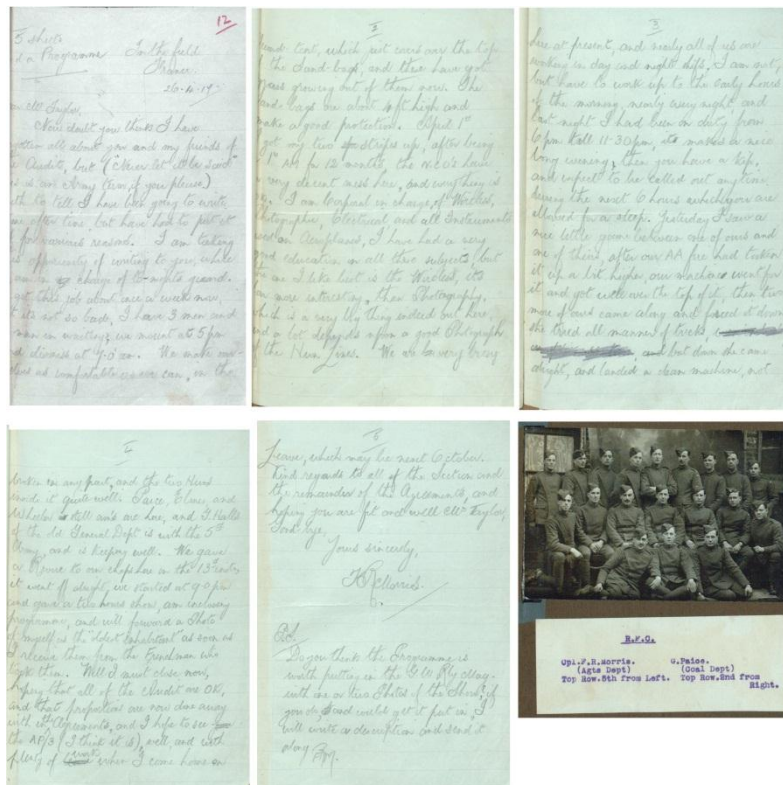 12
5 sheets
Programme
In the field
France
26-4-17
Mr Taylor,
Now doubt you thinks I have
gotten all about you and my friends of
the Audits, but ("Never let it be said"
is an Army term, if you please)
to tell I have been going to write
after time, but have had to put it
for various reasons. I am taking
opportunity of writing to you, while
in charge of to-nights guard.
got this job about once a week now,
its not so bad, I have 3 men and
man in waiting; we mount at 5 pm
and dismiss at 7.0 am. We make our-
selves as comfortable as we can, in the
2
tent, which just comes over the top
of the sand-bags, and these have got
grass growing out of them now. The
sand bags are about 4 ft high and
make a good protection. April 1st
I got my two stripes up, after being
1st AM for 12 months, the N.C.O's have
a very decent mess here, and everything is
I am Corporal in charge, of Wireless,
Photographic, Electrical and all Instruments
used on Aeroplanes, I have had a very
good education in all these subjects, but
the one I like best is the Wireless, its
far more interesting, then Photography,
which is a very big thing indeed out here,
and a lot depends upon a good Photograph
of the Hun Lines. We are very busy
3
here at present, and nearly all of us are
working in day and night shifts, I am not,
but have to work up to the early hours
of the morning, nearly every night and
last night I had been on duty from
6 pm till 11-30 pm, its makes a nice
long evening, then you have a sleep,
and expect to be called out any time
during the next 6 hours which you are
allowed for a sleep. Yesterday I saw a
nice little game between one of ours and
one of theirs, after our AA fire had turned
it up a bit higher, our machine went for
it and got well over the top of it, then two
more of ours came along and forced it down
she tried all manner of tricks,
and but down she came
alright, and landed a clean machine, not
4
broken in any part, and the two Huns
in it quite well. Paice, Elms, and
still are here, and T. Halls
of the old General Dept is with the 5th
Army, and is keeping well. We gave
a to our chaps here on the 13th
it went off alright, we started at 9.0 pm
and gave a two hours show, am enclosing
programme, and will forward a Photo
of myself as the "oldest inhabitant" as soon as
I receive them from the Frenchman who
took them. Well I must close now,
hoping that all of the Audit are OK,
and that proportions are now done away
with in Agreements, and I hope to see
the AP/3 (I think it is), well, and with
plenty of work when I come home on
5
Leave, which may be next October.
Kind regards to all of the Section and
the remainder of the Agreements, and
hoping you are fit and well Mr Taylor,
Good bye,
Yours sincerely,
F R Morris.
P.S.
Do you think the Programme is
worth putting in the G.W. Rly Mag.
with one or two Photos of the Show; if
you do, and could get it put in, I
will write a description and send it
along
FRM.
R.F.C.
Cpl.F.R.Morris. G.Paice.
(Agts Dept) (Coal Dept)
Top Row.5th from Left. Top Row.2nd from
Right.